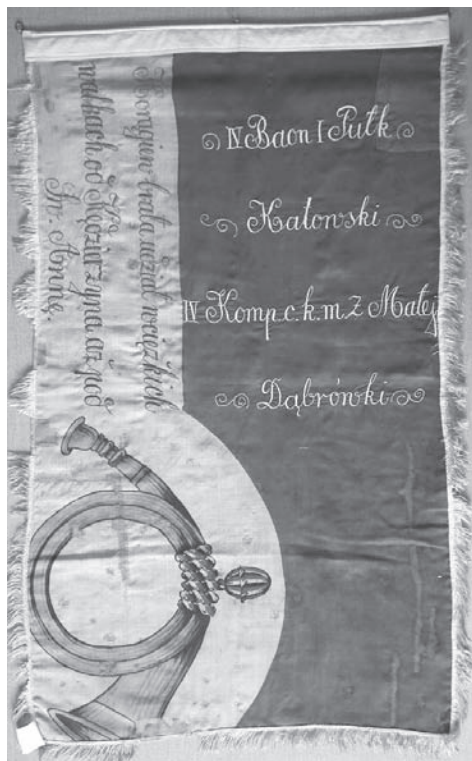 IV Baon I Pułk
Katowski
IV Komp. c. k. m. Z Małej
Dąbrówki
brała udział wciężkich
walkach od Kędzierzyna aż pod
Św. Annę.